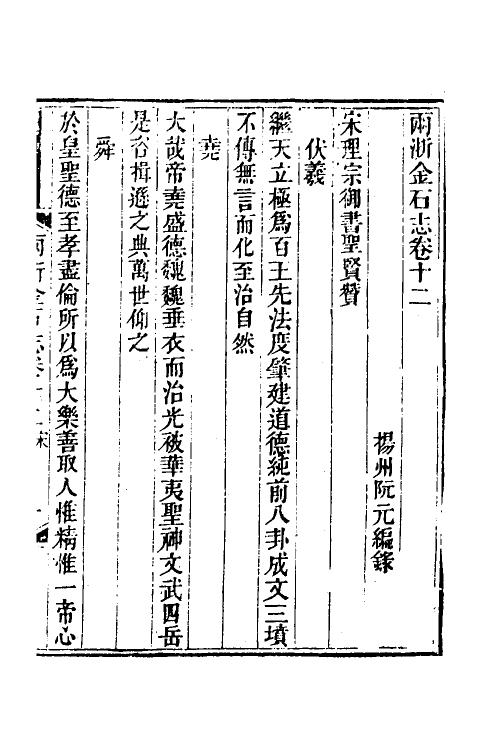 兩浙金石志卷十二
揚州阮元編錄
宋理宗御書聖賢贊
伏羲
繼天立極爲百王先法度肇建道德純前八卦成文三墳
不傳無言而化至治自然
堯
大哉帝堯盛德巍巍垂衣而治光被華夷聖神文武四岳
是咨揖遜之典萬世仰之
舜
於皇聖德至孝盡倫所以爲大樂善取人惟精惟一帝心
兩浙金石志卷十二 宋 一